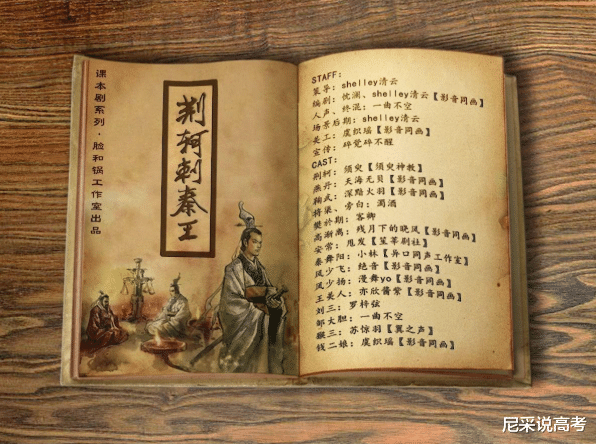 课本剧系列·脸和锅工作室出品
荆轲刺秦王
STAFF:
策导: shelley清云
编剧: 忱澜、shelley清云【影音同画】
人声、终混: 一曲不空
场景后期: shelley清云
美工: 虞织瑶【影音同画】
宣传: 碎觉碎不醒
CAST:
荆轲: 须臾【须臾神教】
燕丹: 天海无贝【影音同画】
鞠武: 深黯火羽【影音同画】
将梁、旁白: 濁酒
樊於期: 客卿
高渐离: 残月下的晚风【影音同画】
安常: 甩发【茧莘剧社】
秦舞阳: 小林【异口同声工作室】
风少飞: 绝音【影音同画】
风少扬: 漫舞yo【影音同画】
王美人: 亦欣酱紫【影音同画】
刘三: 罗梓弦
邹大胆: 一曲不空
猴三: 苏惊羽【翼之声】
钱二娘: 虞织瑶【影音同画】
尼采说高考